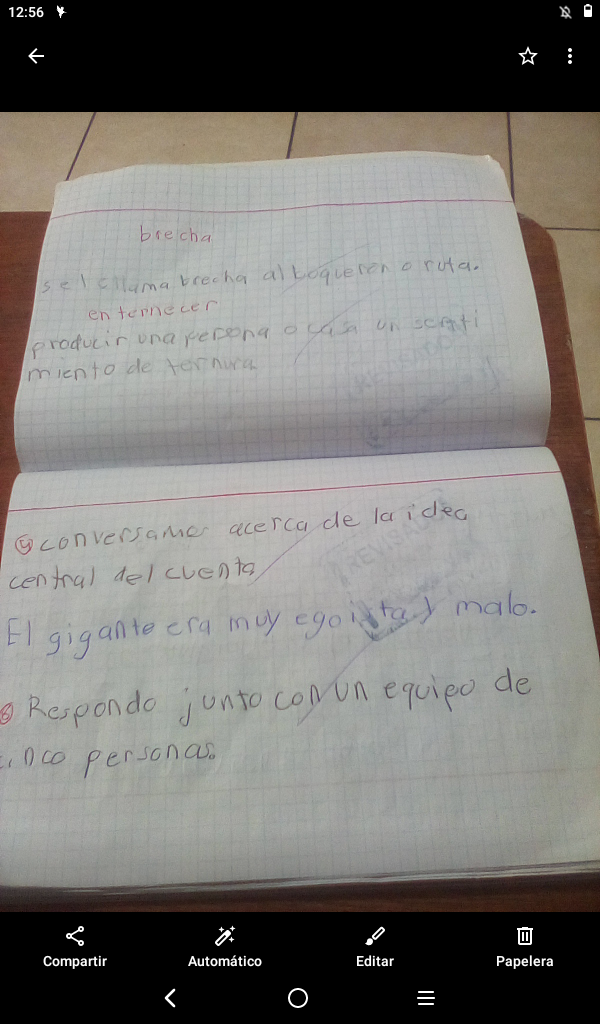 12:56
brecha
se l c llama brecha al boqueren o ruta.
enternecer
producir una persona o casa un senti
miento de ternura
4 conversamos acerca de la idea
central del cuento
El gigante era muy egoista y malo.
6 Respondo junto con un equipo de
cinco personas.
REVISADO
Compartir
Automático
Editar
Papelera